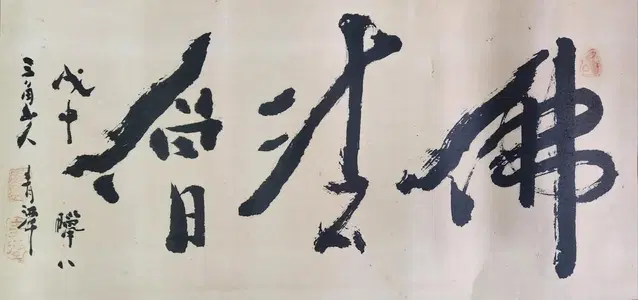 佛法僧
戊申 臘八
三角山人 青潭